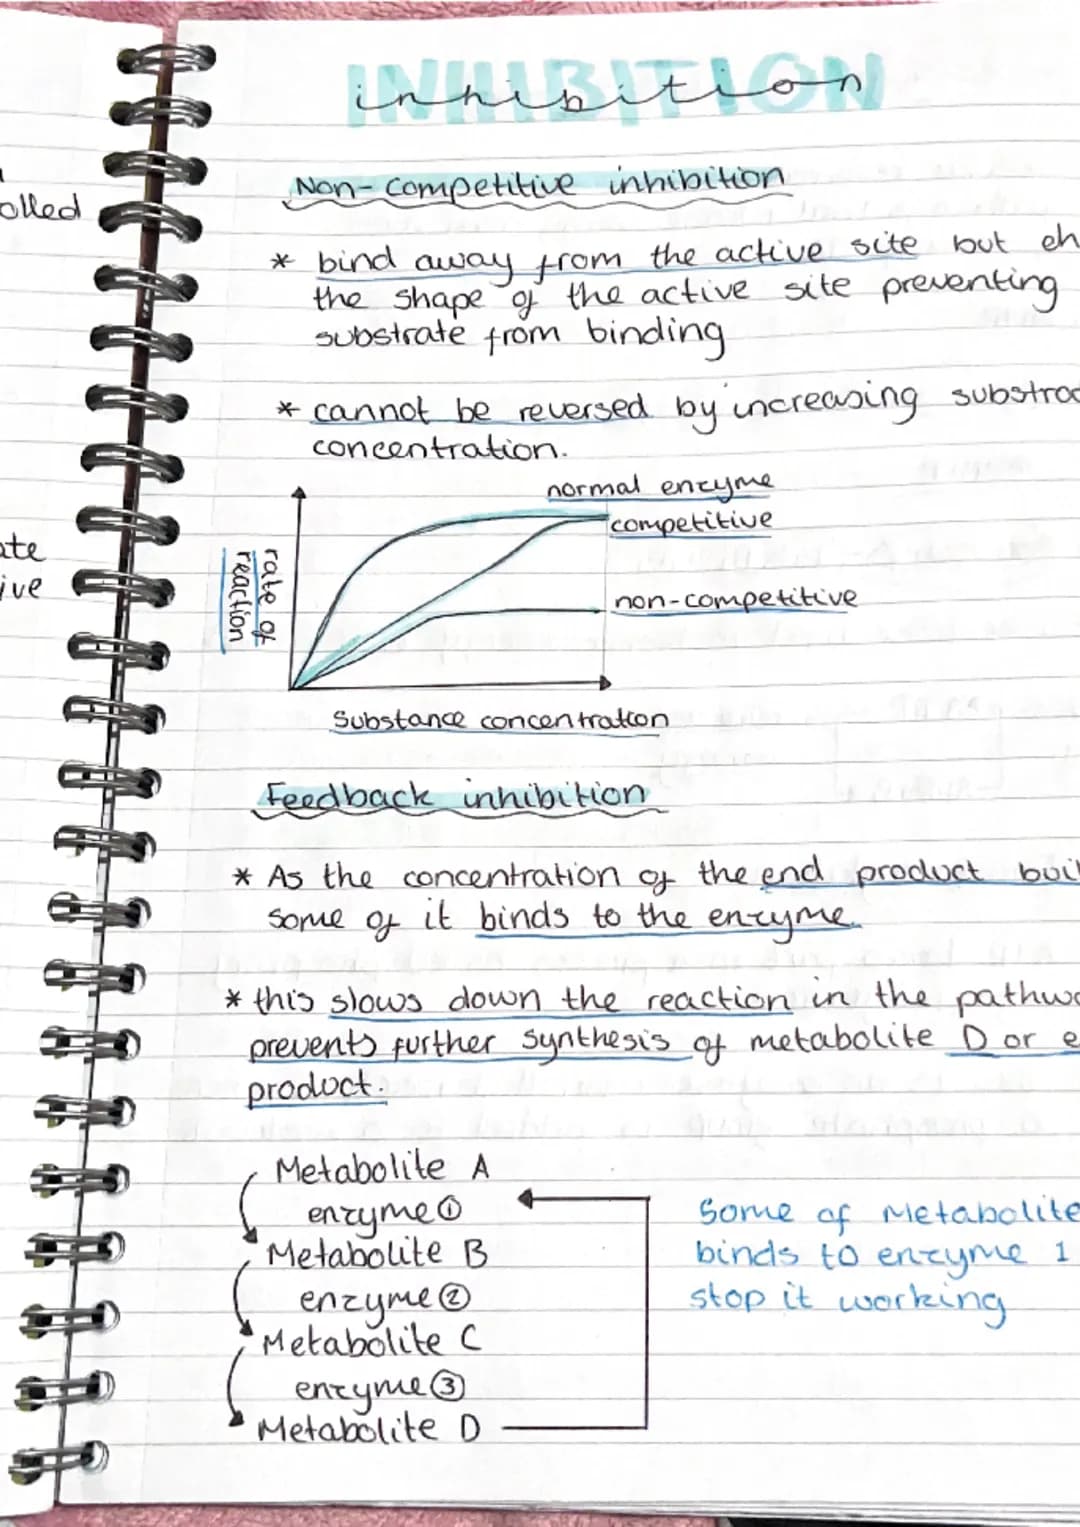 olled
ate
ive
INHIBITION
inhibition
Non-competitive inhibition
* bind away from the active site but ch
the shape of the active site preventing
substrate from binding
* cannot be reversed by increasing substra
concentration.
normal enzyme
competitive
non-competitive
rate of
reaction
Substance concentration
Feedback inhibition
* As the concentration of the end product buil
some of it binds to the enzyme.
* this slows down the reaction in the pathwa
prevents further synthesis of metabolite D or e
product.
Metabolite A
enzyme ①
Metabolite B
enzyme ②
Metabolite C
enzyme ③
Metabolite D
Some of Metabolite
binds to enzyme 1
stop it working